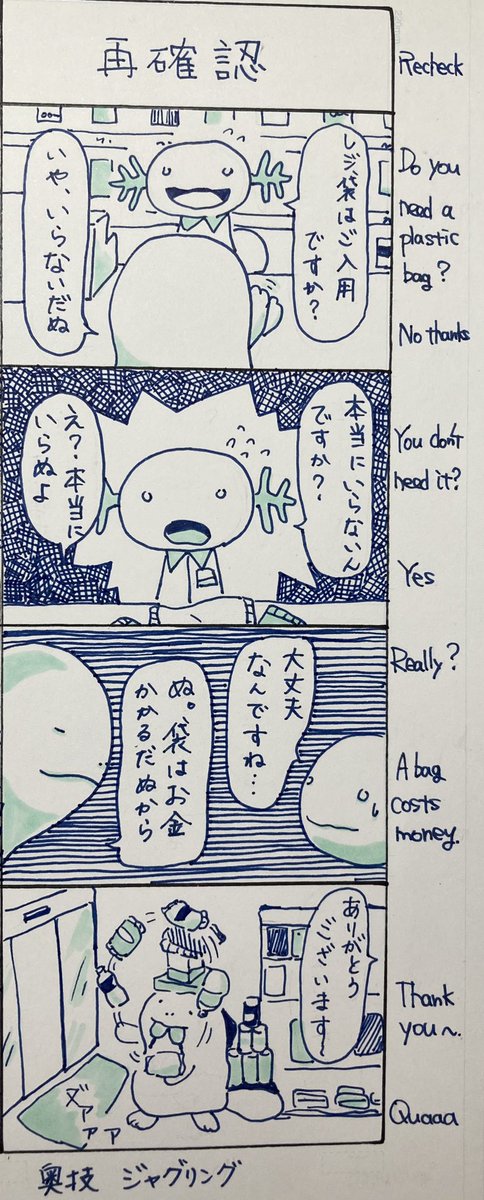 再確認
Recheck
レジ袋はご入用
ですか？
いや、いらないだぬ
Do you
need a
plastic
bag?
No thanks
本当にいらないん
ですか？
え？本当に
いらぬよ
You don't
need it?
Yes
大丈夫
なんですね…
ぬ。袋はお金
かかるだぬから
Really?
A bag
costs
money.
ありがとう
ございます〜
Thank
you〜.
Quaaa
奥技 ジャグリング